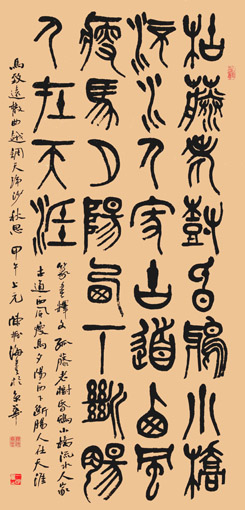 枯藤老樹昏鴉小橋
流水人家古道西風
瘦馬夕陽西下斷腸
人在天涯
篆書釋文 枯藤老樹昏鴉小橋流水人家
古道西風瘦馬夕陽西下斷腸人在天涯
馬致遠散曲越調天淨沙秋思 甲午上元 海書於京華